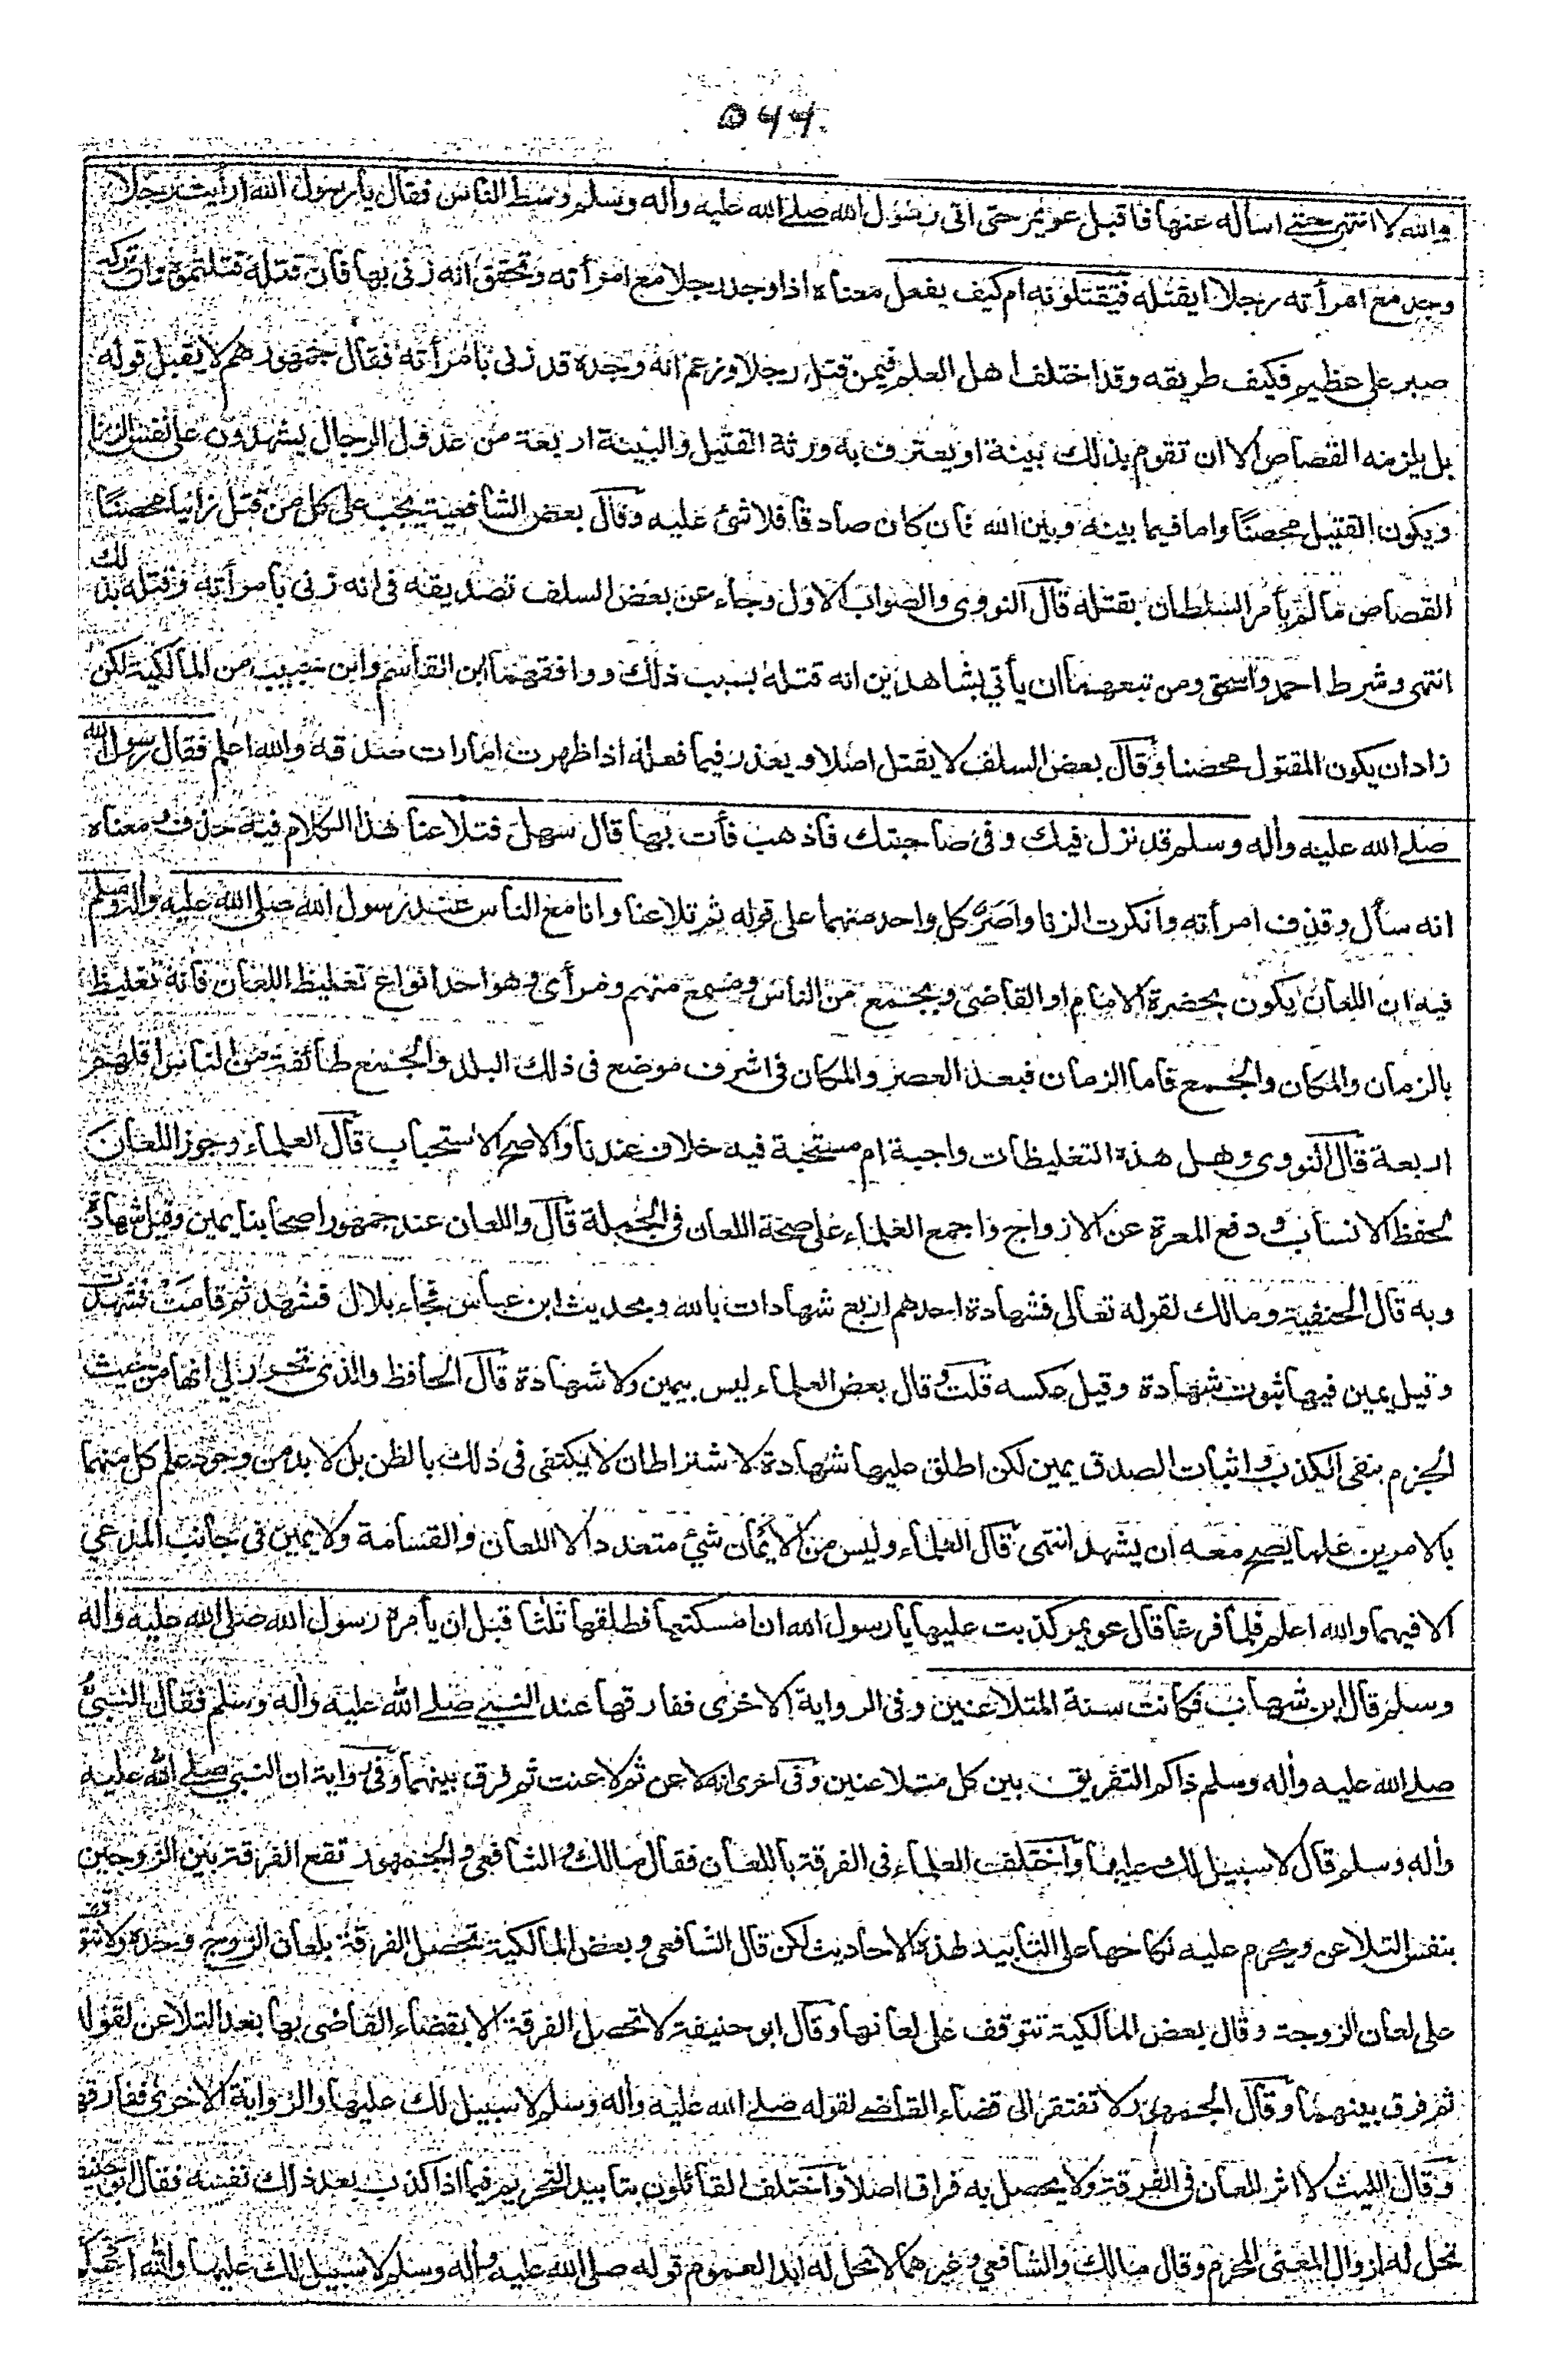 ٥٤٤
والله لا انتهى حتى اسأله عنها فاقبل عويمر حتى اتى رسول الله صلى الله عليه وأله وسلم وسط الناس فقال يا رسول الله ارأيت رجلا
وجد مع امرأته رجلا ايقتله فتقتلونه ام كيف يفعل معناه اذا وجد رجلا مع امرأته وتحقق انه زنى بها فان قتله قتلتموه وان تركه
صبر على عظيم فكيف طريقه وقد اختلف اهل العلم فيمن قتل رجلا وزعم انه وجده قد زنى بامرأته فقال جمهورهم لا يقبل قوله
بل يلزمه القصاص الا ان تقوم بذلك بينة او يعترف به ورثة القتيل والبينة اربعة من عدول الرجال يشهدون على نفس الزنا
ويكون القتيل محصنًا واما فيما بينه وبين الله فان كان صادقا فلا شئ عليه وقال بعض الشافعية يجب على كل من قتل زانيا محصنًا
القصاص ما لم يأمر السلطان بقتله قال النووى والصواب الاول وجاء عن بعض السلف تصديقه فى انه زنى بامرأته وقتله بذلك
انتهى وشرط احمد واسحق ومن تبعهما ان يأتى بشاهدين انه قتله بسبب ذلك ووافقهما ابن القاسم وابن حبيب من المالكية لكن
زاد ان يكون المقتول محصنا وقال بعض السلف لا يقتل اصلا ويعذر فيما فعله اذا ظهرت امارات صدقه والله اعلم فقال رسول الله
صلے الله عليه وأله وسلم قد نزل فيك وفى صاحبتك فاذهب فأت بها قال سهل فتلاعنا هذا الكلام فيه حذف ومعناه
انه سأل وقذف امرأته وانكرت الزنا واصر كل واحد منهما على قوله ثم تلاعنا وانا مع الناس عند رسول الله صلى الله عليه وأله وسلم
فيه ان اللعان يكون بحضرة الامام او القاضى وبجمع من الناس ومسمع منهم ومرأى وهو احد انواع تغليظ اللعان فانه تغليظ
بالزمان والمكان والجمع فاما الزمان فبعد العصر والمكان فى اشرف موضع فى ذلك البلد والجمع طائفة من الناس اقلهم
اربعة قال النووى وهل هذه التغليظات واجبة ام مستحبة فيه خلاف عندنا والاصح الاستحباب قال العلماء وجوز اللعان
لحفظ الانساب ودفع المعرة عن الازواج واجمع العلماء على صحة اللعان فى الجملة قال واللعان عند جمهور اصحابنا يمين وقيل شهادة
وبه قال الحنفية ومالك لقوله تعالى فشهادة احدهم اربع شهادات بالله وبحديث ابن عباس فجاء بلال فشهد ثم قامت فشهدت
وقيل يمين فيها ثبوت شهادة وقيل عكسه قلت وقال بعض العلماء ليس بيمين ولا شهادة قال الحافظ والذى تحرر لى انها من حيث
الجزم بنفى الكذب واثبات الصدق يمين لكن اطلق عليها شهادة لاشتراط ان لا يكتفى فى ذلك بالظن بل لا بد من وجود علم كل منهما
بالامرين علما يصح معه ان يشهد انتهى قال العلماء وليس من الايمان شئ متعدد الا اللعان والقسامة ولا يمين فى جانب المدعي
الا فيهما والله اعلم فلما فرغا قال عويمر كذبت عليها يا رسول الله ان امسكتها فطلقها ثلثا قبل ان يأمره رسول الله صلى الله عليه وأله
وسلم قال ابن شهاب فكانت سنة المتلاعنين وفى الرواية الاخرى ففارقها عند النبى صلے الله عليه وأله وسلم فقال النبى
صلے الله عليه وأله وسلم ذاكم التفريق بين كل متلاعنين وفى اخرى انه لاعن ثم لاعنت ثم فرق بينهما وفى رواية ان النبى صلے الله عليه
وأله وسلم قال لا سبيل لك عليها واختلفت العلماء فى الفرقة باللعان فقال مالك والشافعى والجمهور تقع الفرقة بين الزوجين
بنفس التلاعن ويحرم عليه نكاحها على التأبيد لهذه الاحاديث لكن قال الشافعى وبعض المالكية تحصل الفرقة بلعان الزوج وحده ولا تتوقف
على لعان الزوجة وقال بعض المالكية تتوقف على لعانها وقال ابو حنيفة لا تحصل الفرقة الا بقضاء القاضى بها بعد التلاعن لقوله
ثم فرق بينهما وقال الجمهور لا تفتقر الى قضاء القاضے لقوله صلے الله عليه وأله وسلم لا سبيل لك عليها والرواية الاخرى ففارقها
وقال الليث لا اثر للعان فى الفرقة ولا يحصل به فراق اصلا واختلف القائلون بتأبيد التحريم فيما اذا كذب بعد ذلك نفسه فقال ابو حنيفة
تحل له لزوال المعنى المحرم وقال مالك والشافعى وغيرهما لا تحل له ابدا لعموم قوله صلى الله عليه وأله وسلم لا سبيل لك عليها والله اعلم